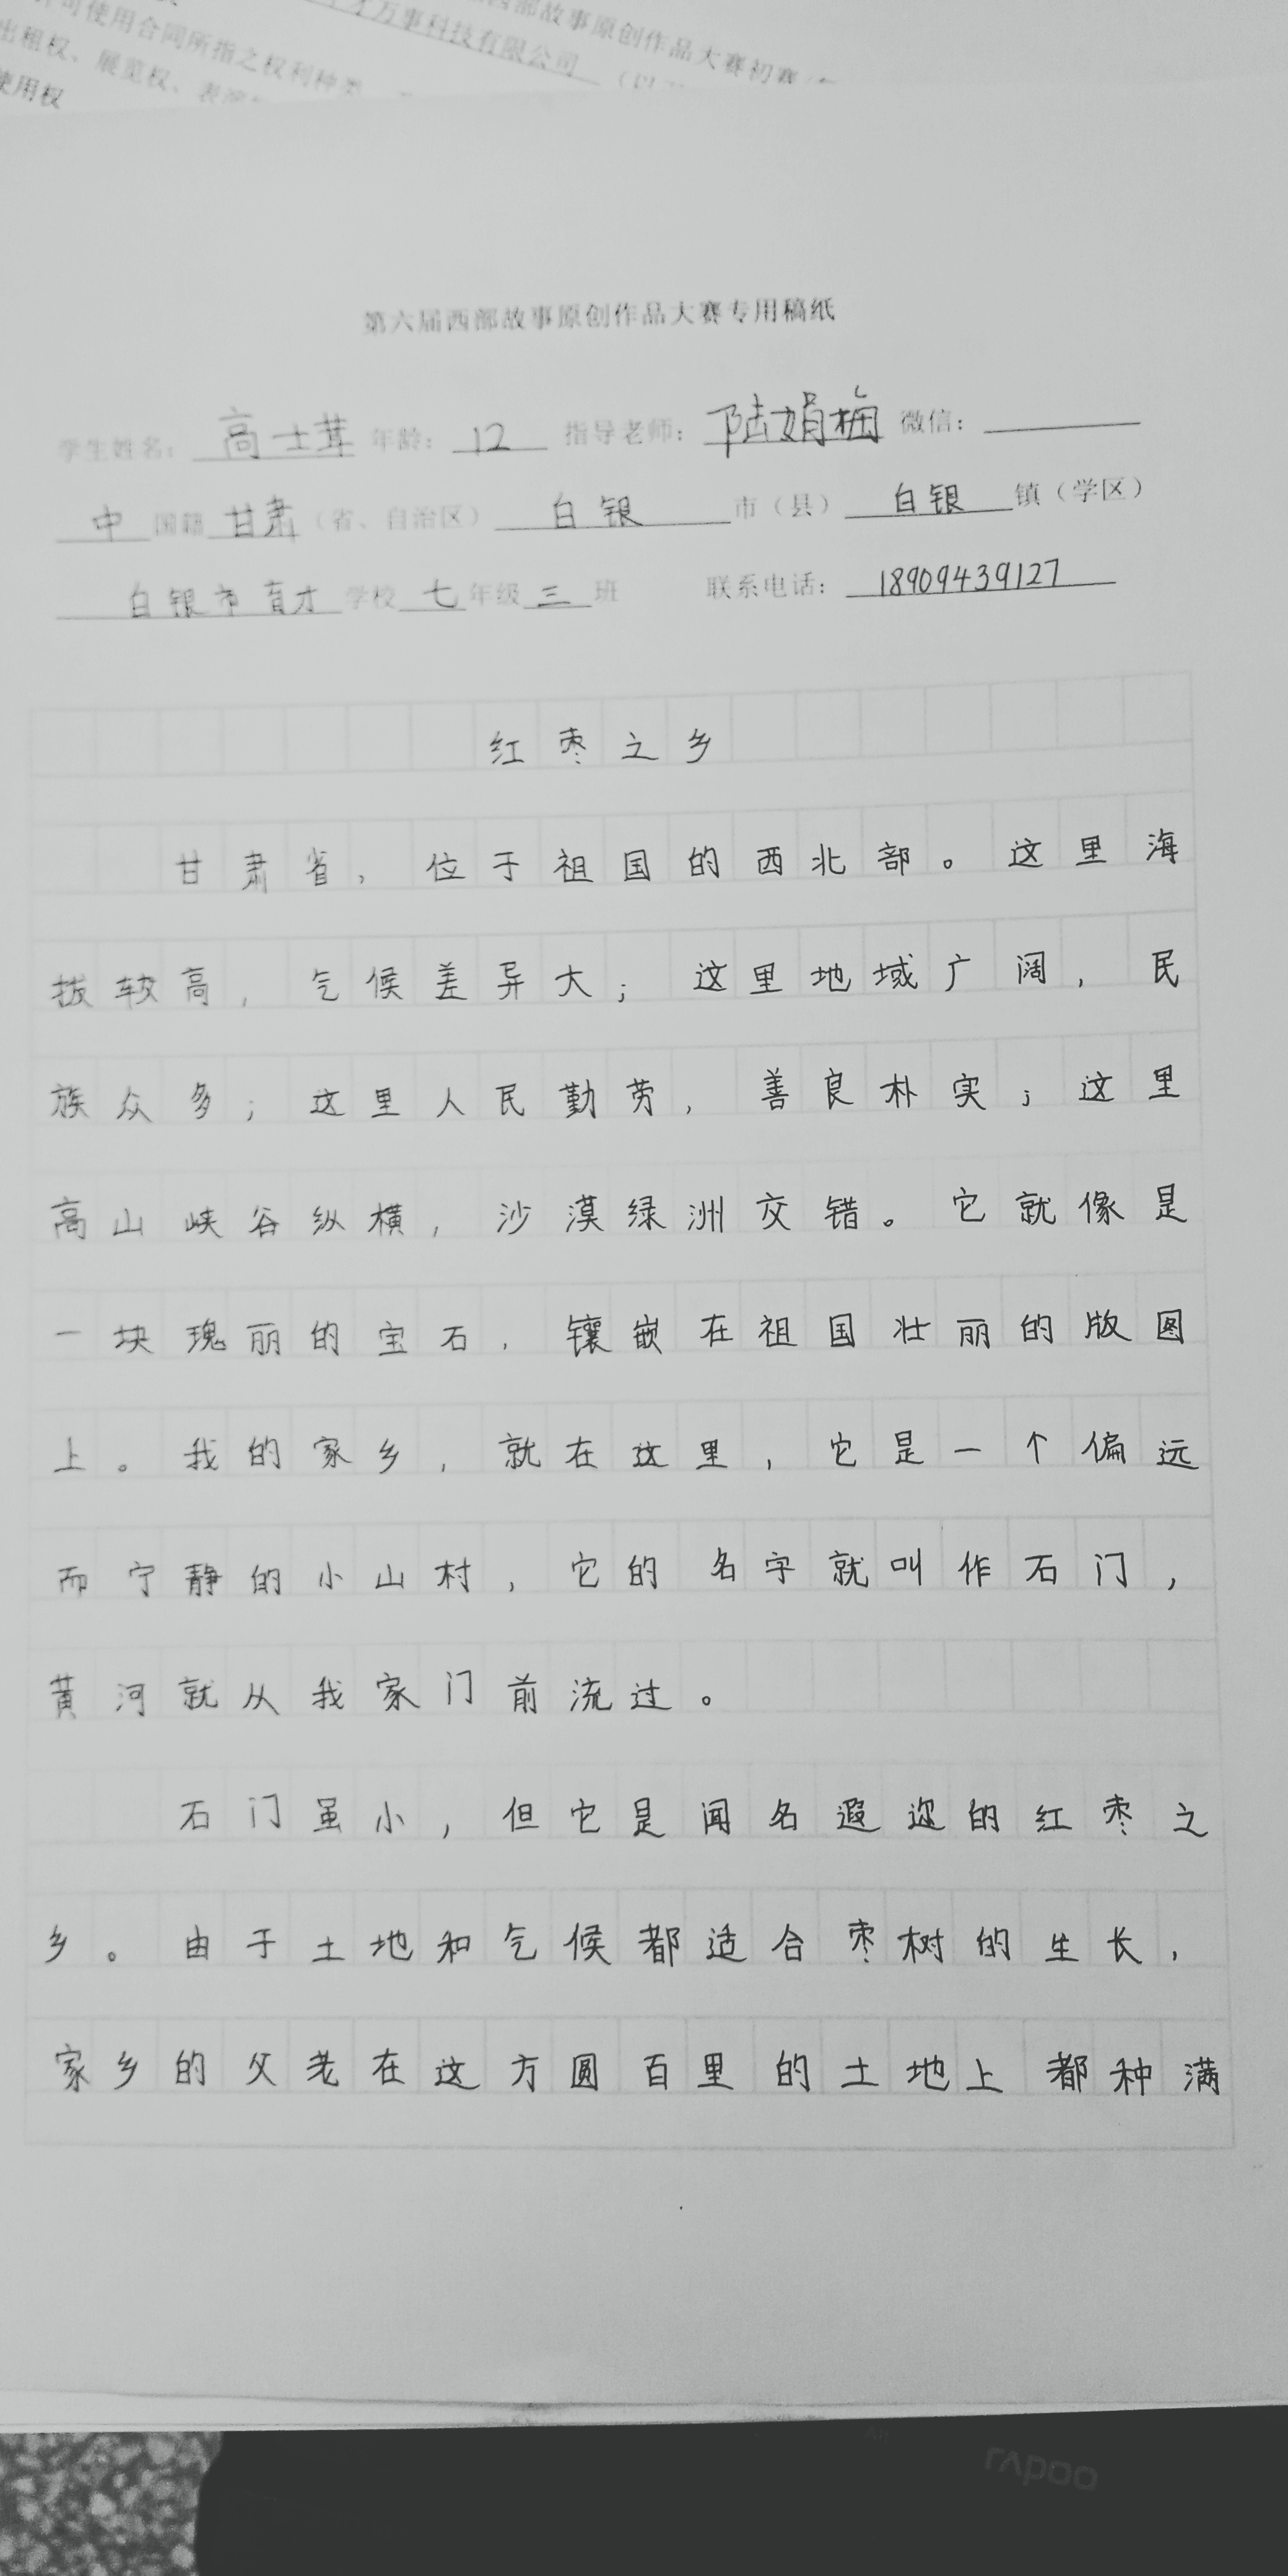 西部故事原创作品大赛初赛
才万事科技有限公司 （以
可使用合同所指之权利种类
出租权、展览权、表演
使用权
第六届西部故事原创作品大赛专用稿纸
学生姓名： 高士茸 年龄： 12 指导老师： 陆娟梅 微信：
中 国籍 甘肃 （省、自治区） 白银 市（县） 白银 镇（学区）
白银市育才 学校 七 年级 三 班 联系电话： 18909439127
红枣之乡
甘肃省，位于祖国的西北部。这里海
拔较高，气候差异大；这里地域广阔，民
族众多；这里人民勤劳，善良朴实；这里
高山峡谷纵横，沙漠绿洲交错。它就像是
一块瑰丽的宝石，镶嵌在祖国壮丽的版图
上。我的家乡，就在这里，它是一个偏远
而宁静的小山村，它的名字就叫作石门，
黄河就从我家门前流过。
石门虽小，但它是闻名遐迩的红枣之
乡。由于土地和气候都适合枣树的生长，
家乡的父老在这方圆百里的土地上都种满
rapoo